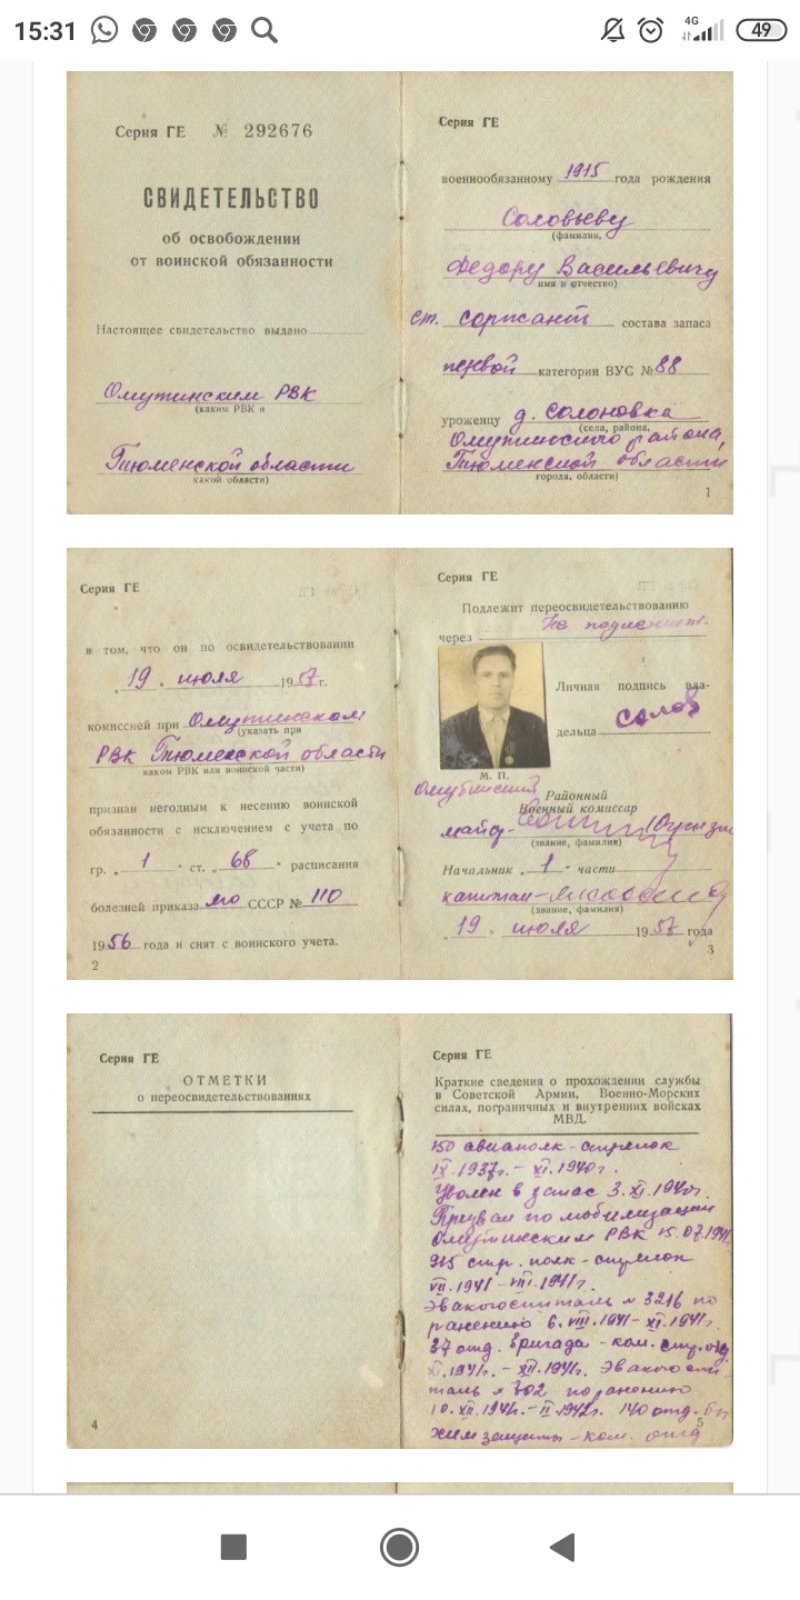 15:31
4G
49
Серия ГЕ № 292676
СВИДЕТЕЛЬСТВО
об освобождении
от воинской обязанности
Настоящее свидетельство выдано
Омутинским РВК
(каким РВК и
Тюменской области
какой области)
Серия ГЕ
военнообязанному 1915 года рождения
Соловьеву
(фамилия,
Федору Васильевичу
имя и отчество)
ст. сержант состава запаса
первой категории ВУС № 88
уроженцу д. Солоновка
(села, района,
Омутинского района,
Тюменской области
города, области)
1
Серия ГЕ
в том, что он по освидетельствовании
„ 19 „ июля 1957 г.
комиссией при Омутинском
(указать при
РВК Тюменской области
каком РВК или воинской части)
признан негодным к несению воинской
обязанности с исключением с учета по
гр. „ 1 " ст. „ 68 " расписания
болезней приказа мо СССР № 110
1956 года и снят с воинского учета.
2
Серия ГЕ
Подлежит переосвидетельствованию
через Не подлежит.
Личная подпись вла-
дельца Солов
М. П.
Омутинский Районный
Военный комиссар
майор-
(звание, фамилия)
Начальник „ 1 " части
капитан-
(звание, фамилия)
„ 19 „ июля 1957 года
3
Серия ГЕ
ОТМЕТКИ
о переосвидетельствованиях
4
Серия ГЕ
Краткие сведения о прохождении службы
в Советской Армии, Военно-Морских
силах, пограничных и внутренних войсках
МВД.
150 авиаполк - стрелок
IX.1937г. - XI.1940г.
Уволен в запас 3.XI.1940г.
Призван по мобилизации
Омутинским РВК 15.07.1941
915 стр. полк - стрелок
VII.1941 - VIII.1941г.
Эвакогоспиталь № 3216 по
ранению 6.VIII.1941 - XI.1941г.
37 отд. бригада - ком. стр. отд.
XI.1941г. - XII.1941г. Эвакогоспи-
таль № 302 по ранению
10.XII.1941г. - II.1942г. 140 отд. б-н
хим защиты - ком. отд
5